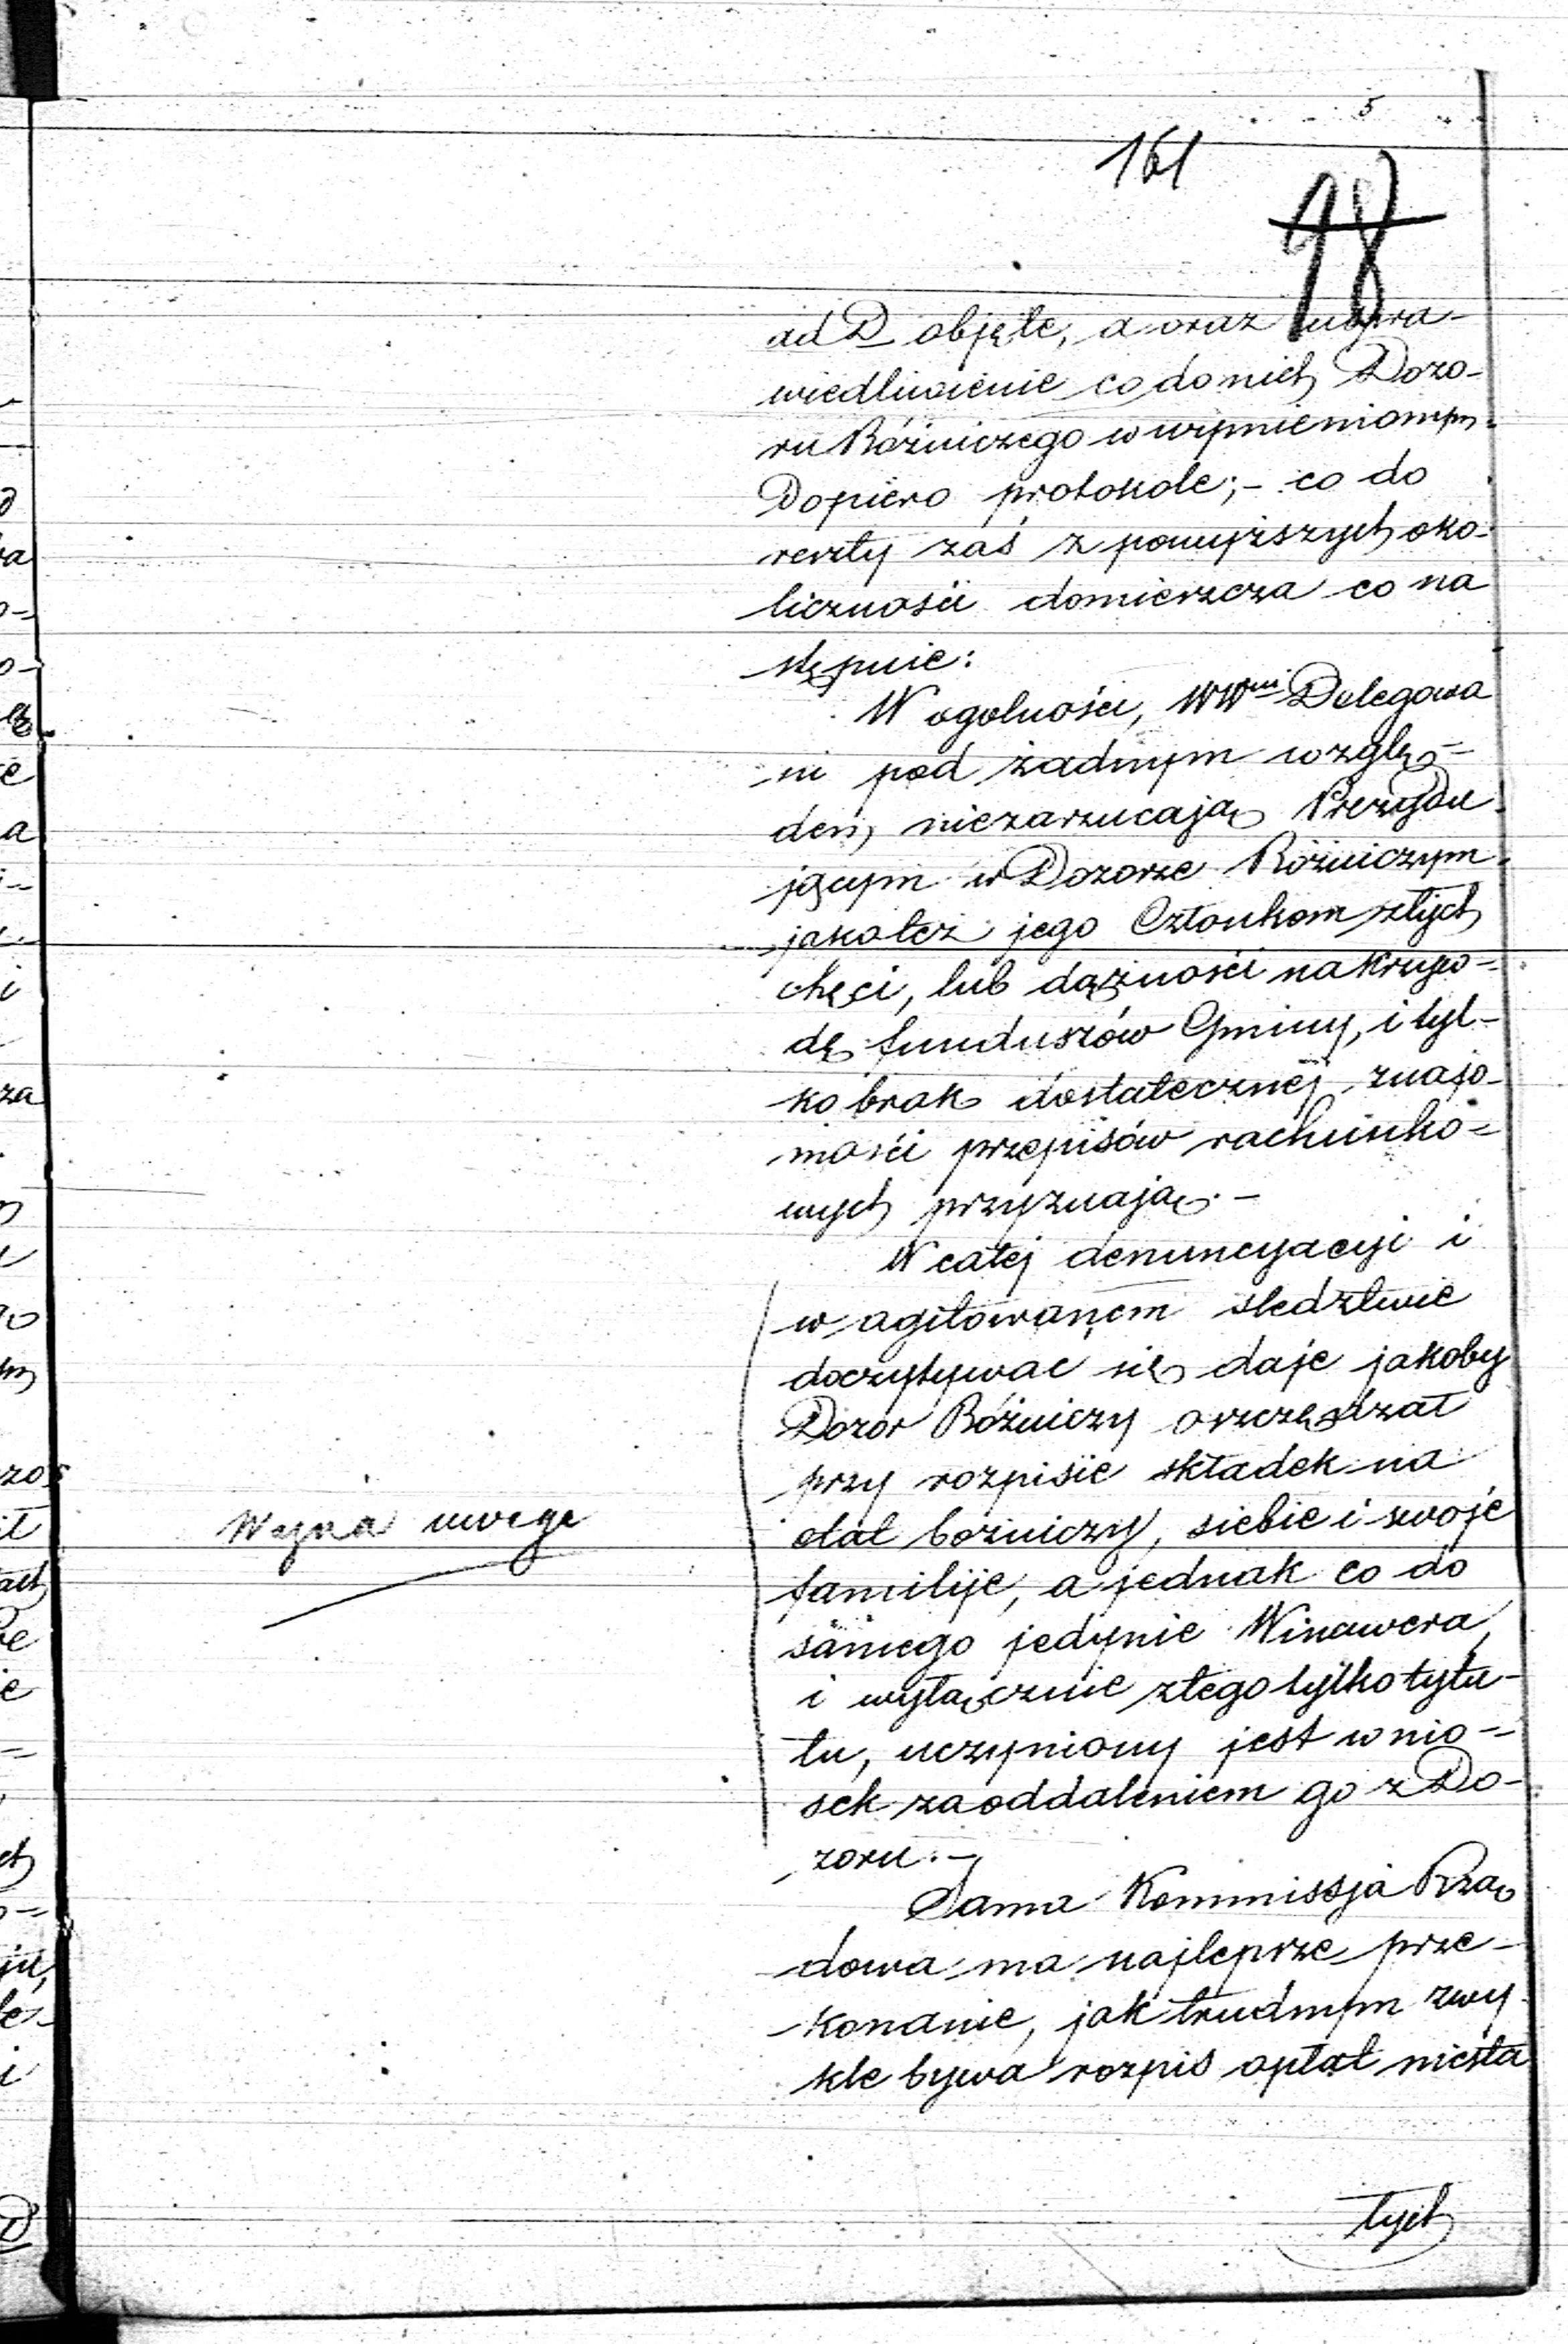 5
161
98
ad D objęte, a oraz uspra-
wiedliwienie co do nich Dozo-
ru Bóżniczego w wymienionym
Dopiero protokole; - co do
reszty zaś z powyższych oko-
liczności domieszcza co na
stępuie:
W ogolności, WWni Delegowa
ni pod żadnym wzglę-
dem, niezarzucają Prezydu-
jącym w Dozorze Bóżniczym
jakoteż jego Członkom złych
chęci, lub dążności na krzyw-
dę funduszów Gminy, i tyl-
ko brak dostatecznej znajo-
mości przepisów rachunko-
wych przyznają. -
W całej denuncyacyi i
w agitowanem śledztwie
doczytywać się daje jakoby
Dozor Bóżniczy oszczędzał
przy rozpisie składek na
etat bożniczy, siebie i swoje
Wazna uwaga
familije, a jednak co do
samego jedynie Winawera,
i wyłącznie z tego tylko tytu-
łu, uczyniony jest wnio-
sek za oddaleniem go z Do-
zoru. -
Sama Kommissja Rzą
dowa ma najlepsze prze-
konanie, jak trudnym zwy-
kle bywa rozpis opłat niesta
tych